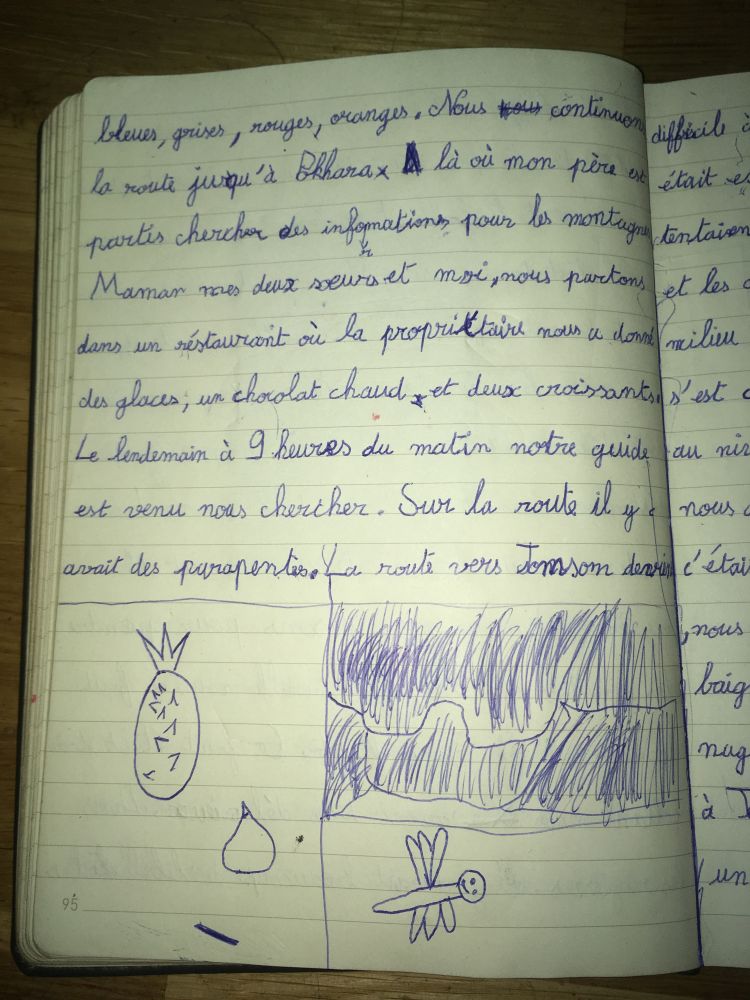 bleues, grises, rouges, oranges. Nous continuons
la route jusqu'à Pkhara là où mon père est
partis chercher des informations pour les montagnes
Maman mes deux sœurs et moi, nous partons
dans un réstaurant où la propriétaire nous a donné
des glaces, un chocolat chaud, et deux croissants.
Le lendemain à 9 heures du matin notre guide
est venu nous chercher. Sur la route il y
avait des parapentes. La route vers Jomsom devin
95
difficile à
était es
tentaien
et les
milieu
s'est
au ni
nous
c'étai
, nous
baig
nag
à J
un